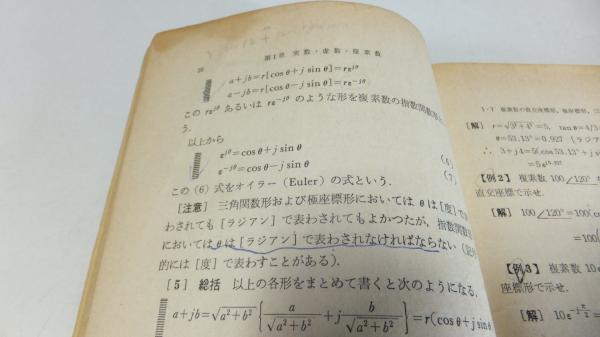 20
第1章 実数・虚数・複素数
a+jb=r[cosθ+j sinθ]=rε^{jθ}
a−jb=r[cosθ−j sinθ]=rε^{−jθ}
この rε^{jθ} あるいは rε^{−jθ} のような形を複素数の指数関数形
う．
以上から
ε^{jθ}=cosθ+j sinθ (6)
ε^{−jθ}=cosθ−j sinθ (7)
この (6) 式をオイラー (Euler) の式という．
［注意］ 三角関数形および極座標形においては θ は［度］で
わされても［ラジアン］で表わされてもよかつたが，指数関数
においては θ は［ラジアン］で表わされなければならない（記
的には［度］で表わすことがある）．
［5］ 総括 以上の各形をまとめて書くと次のようになる．
a+jb=√(a²+b²){a/√(a²+b²)+j b/√(a²+b²)}=r(cosθ+j sinθ
1・7 複素数の直交座標形，極座標形，三
［解］ r=√(3²+4²)=5, tanθ=4/3
θ=53.13°=0.927 ［ラジ
∴ 3+j4=5(cos 53.13°+j
=5ε^{j0.927}
【例2】 複素数 100∠120°
直交座標で示せ．
［解］ 100∠120°=100(cos
=100(
【例3】 複素数 10ε
座標形で示せ．
［解］ 10ε^{−jπ/2}=